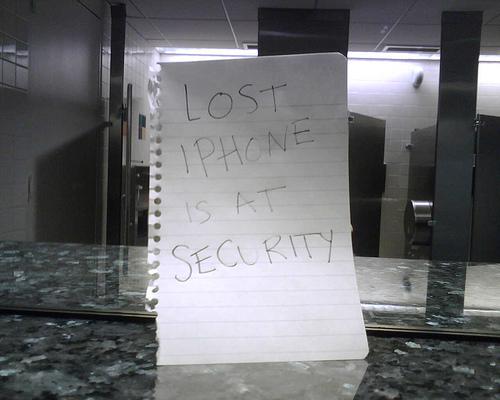 LOST
IPHONE
IS AT
SECURITY